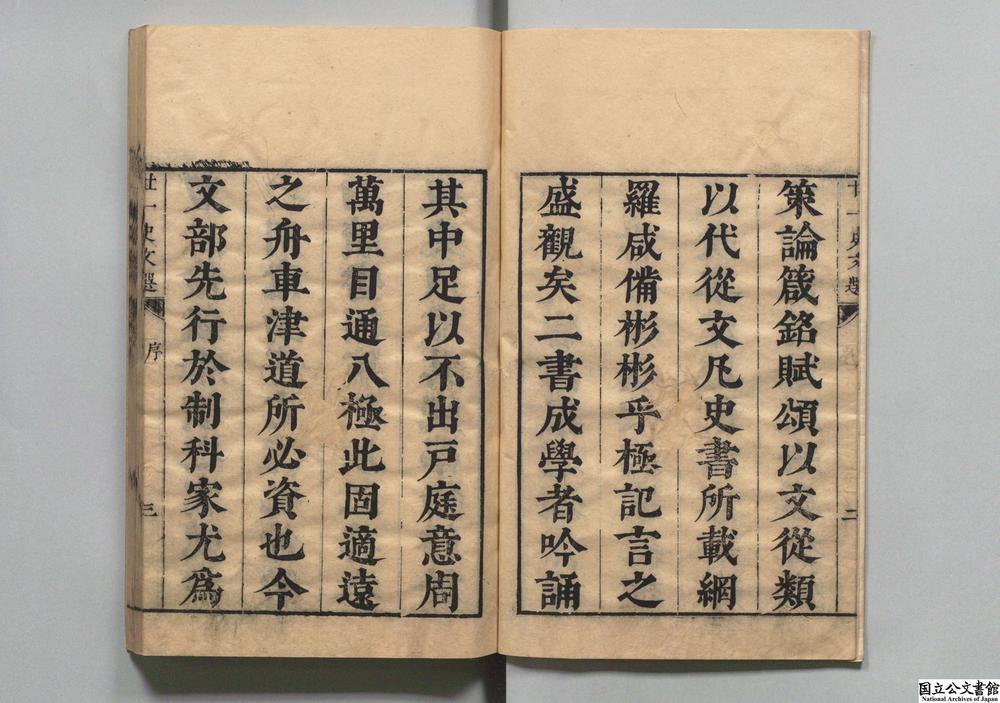 廿一史文選
二
策論箴銘賦頌以文從類
以代從文凡史書所載網
羅咸備彬彬乎極記言之
盛觀矣二書成學者吟誦
其中足以不出戸庭意周
萬里目通八極此固適遠
之舟車津道所必資也今
文部先行於制科家尤爲
廿一史文選
序
三
国立公文書館
National Archives of Japan